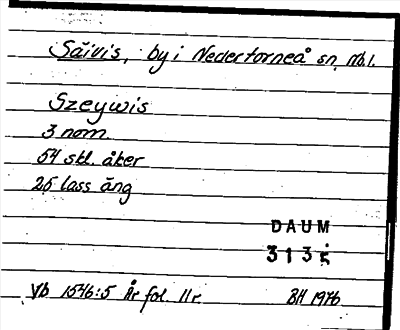 Säivis, by i Nedertorneå sn, Nb.l.
Szeywis
3 nom.
54 skl. åker
25 lass äng
DAUM
3135
Vb 1546:5 År fol. 11r.
BH 1976